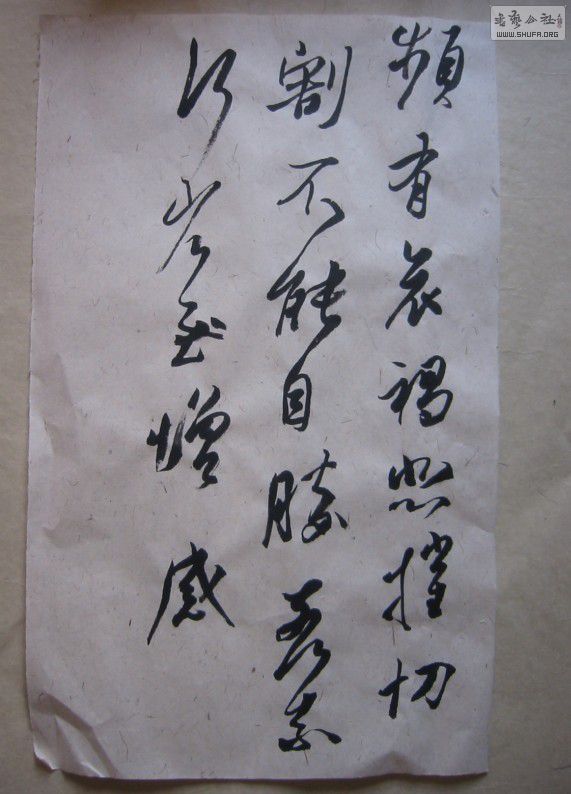 頻有哀禍悲摧切
割不能自勝奈何奈
何省慰增感
书艺公社
WWW.SHUFA.ORG